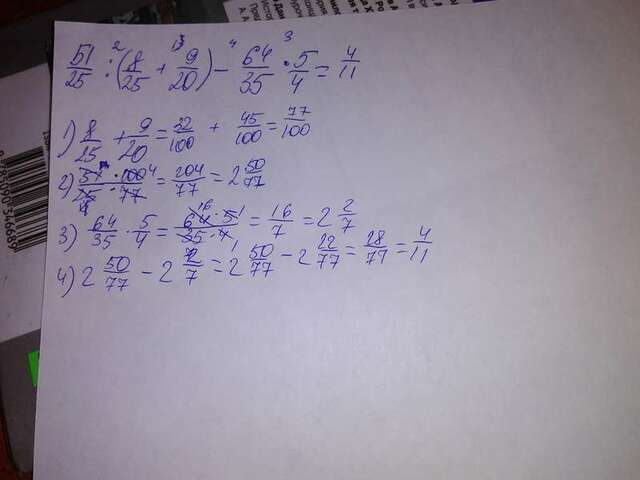 51/25 : (8/25 + 9/20) - 64/35 · 5/4 = 4/11
1) 8/25 + 9/20 = 32/100 + 45/100 = 77/100
2) 51 · 100 4/25 · 77 = 204/77 = 2 50/77
3) 64/35 · 5/4 = 64 · 5/35 · 4 = 16/7 = 2 2/7
4) 2 50/77 - 2 2/7 = 2 50/77 - 2 22/77 = 28/77 = 4/11